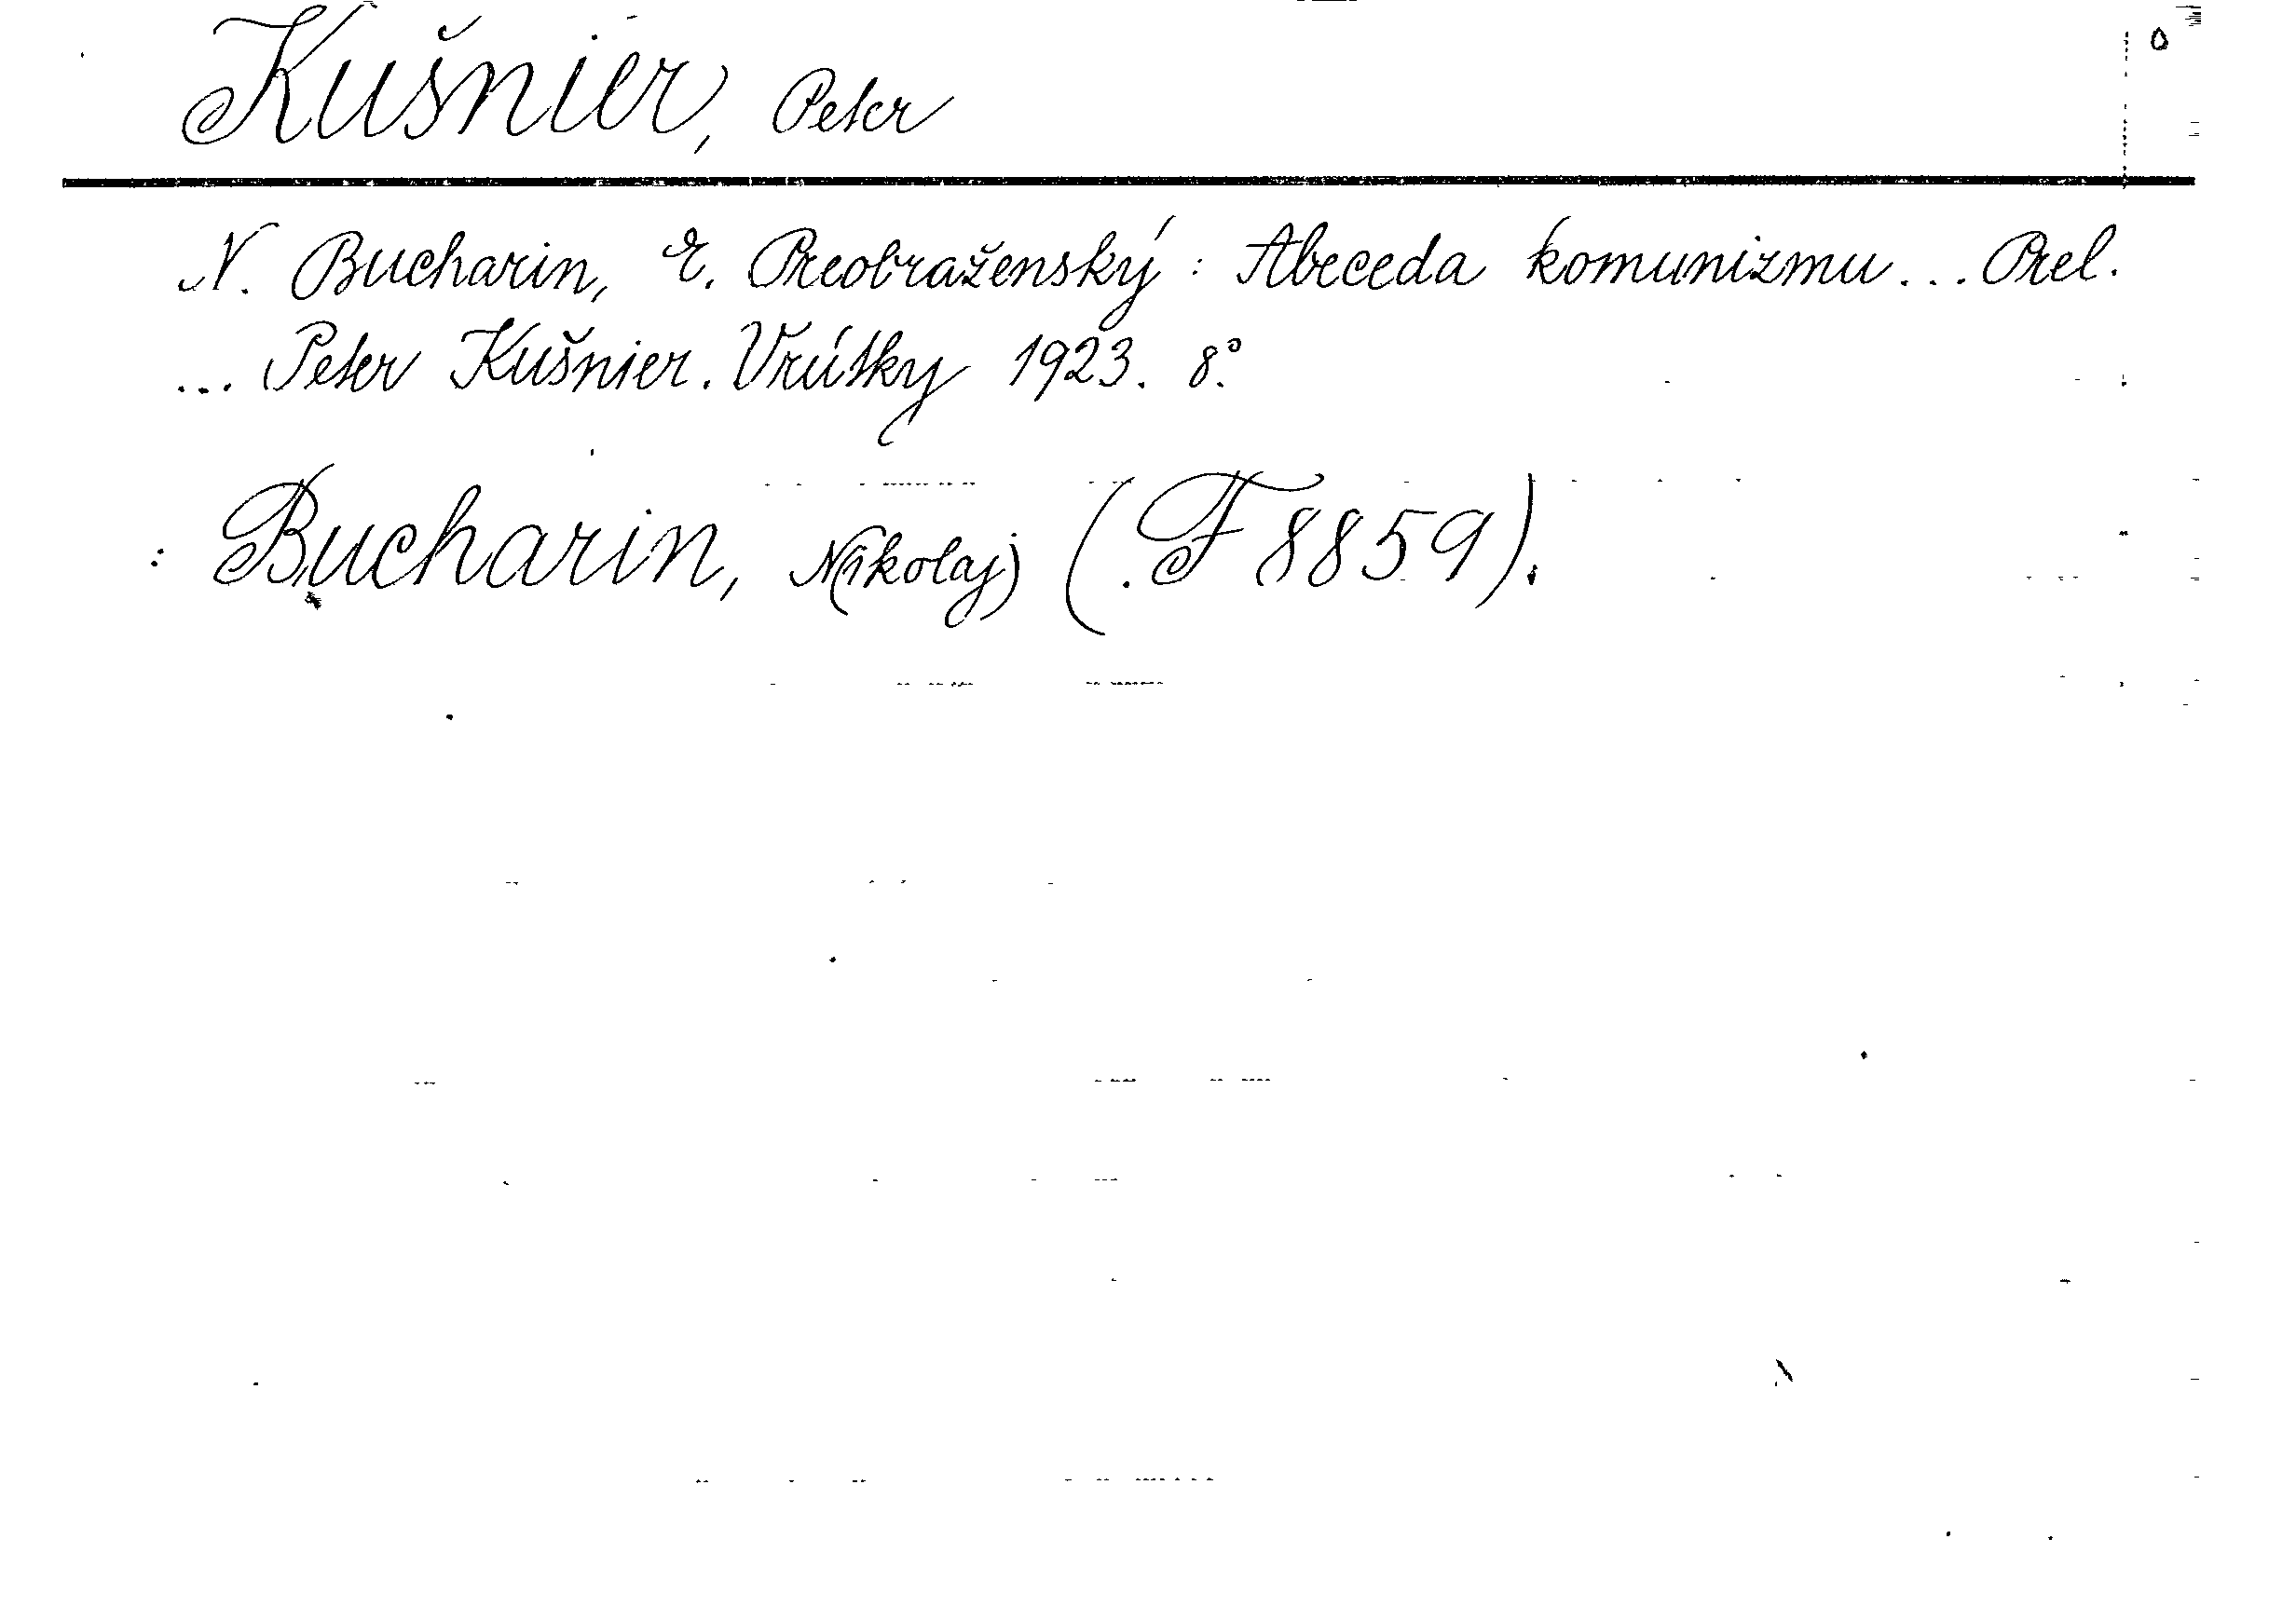 Kušnier, Peter
N. Bucharin, E. Preobraženský: Abeceda komunizmu... Prel.
... Peter Kušnier. Vrútky 1923. 8°.
: Bucharin, N(ikolaj) (.F 8859).